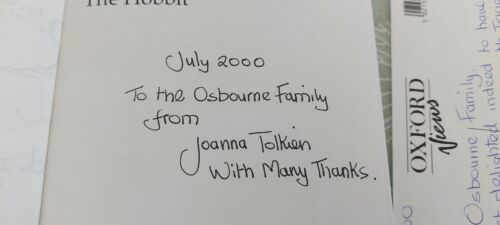 The Hobbit
July 2000
To the Osbourne Family
from
Joanna Tolkien
With Many Thanks.
OXFORD
Views
Osbourne Family,
delighted indeed to have